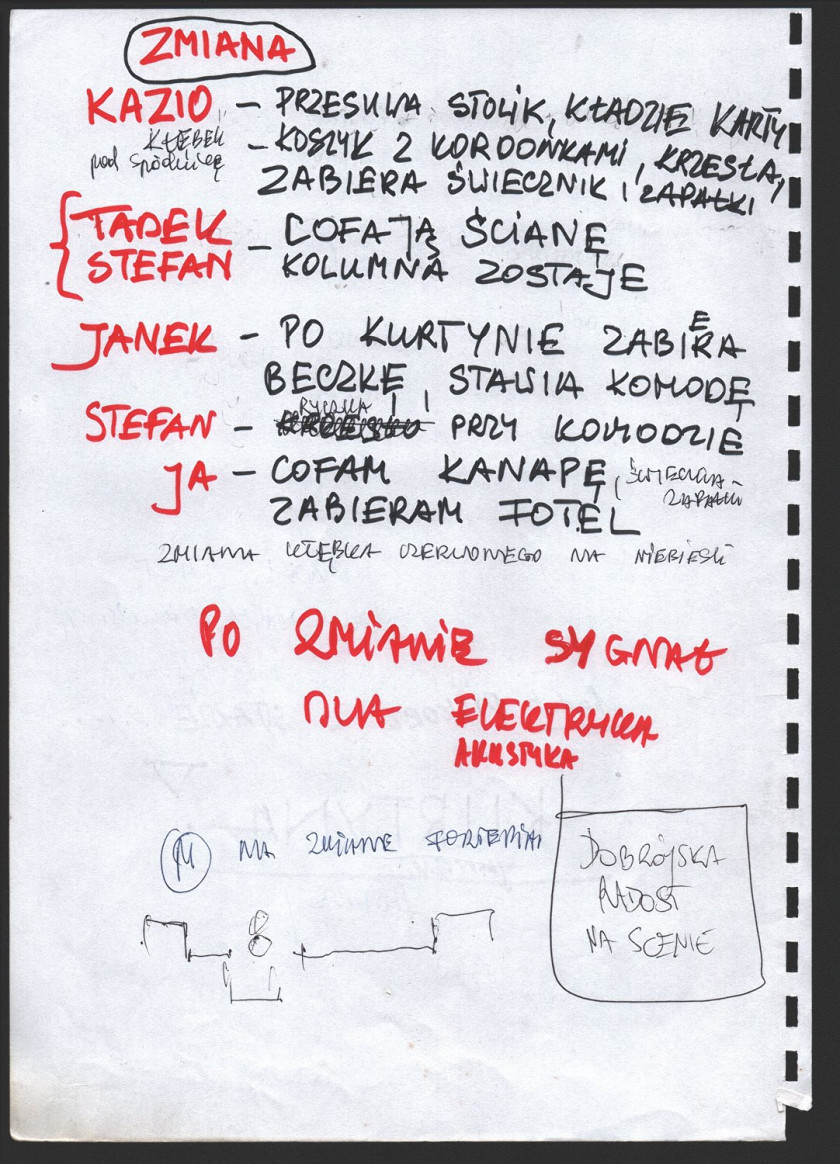 ZMIANA
KAZIO - PRZESUWA STOLIK, KŁADZIE KARTY
KŁĘBEK - KOSZYK Z KORDONKAMI, KRZESŁA,
pod spódnicę ZABIERA ŚWIECZNIK I ZAPAŁKI
TADEK - COFAJĄ ŚCIANĘ
STEFAN KOLUMNA ZOSTAJE
JANEK - PO KURTYNIE ZABIERA
BECZKĘ, STAWIA KOMODĘ
RYCZKA
STEFAN - PRZY KOMODZIE
JA - COFAM KANAPĘ,
ZAPAŁKI
ZABIERAM FOTEL
ZMIANA KŁĘBKA CZERWONEGO NA NIEBIESKI
PO ZMIANIE SYGNAŁ
DLA ELEKTRYKA
AKUSTYKA
M NA ZMIANIE FORTEPIAN
DOBRÓJSKA
RADOŚĆ
NA SCENIE